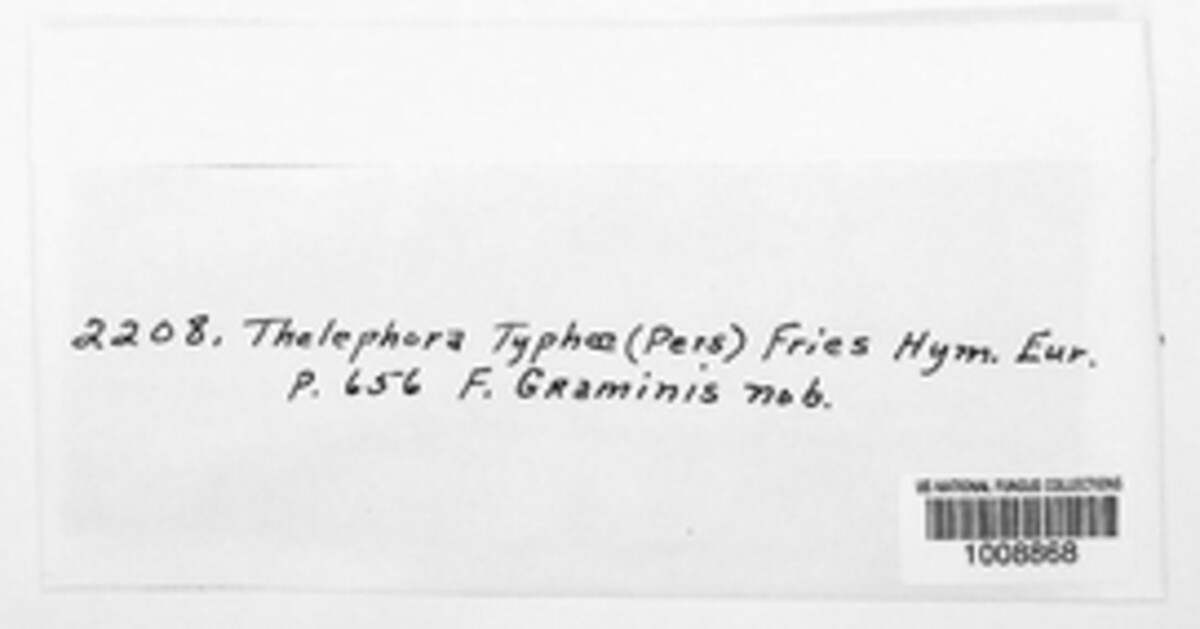 2208. Thelephora Typhæ (Pers) Fries Hym. Eur.
p. 656 F. Graminis nob.
US NATIONAL FUNGUS COLLECTIONS
1008868